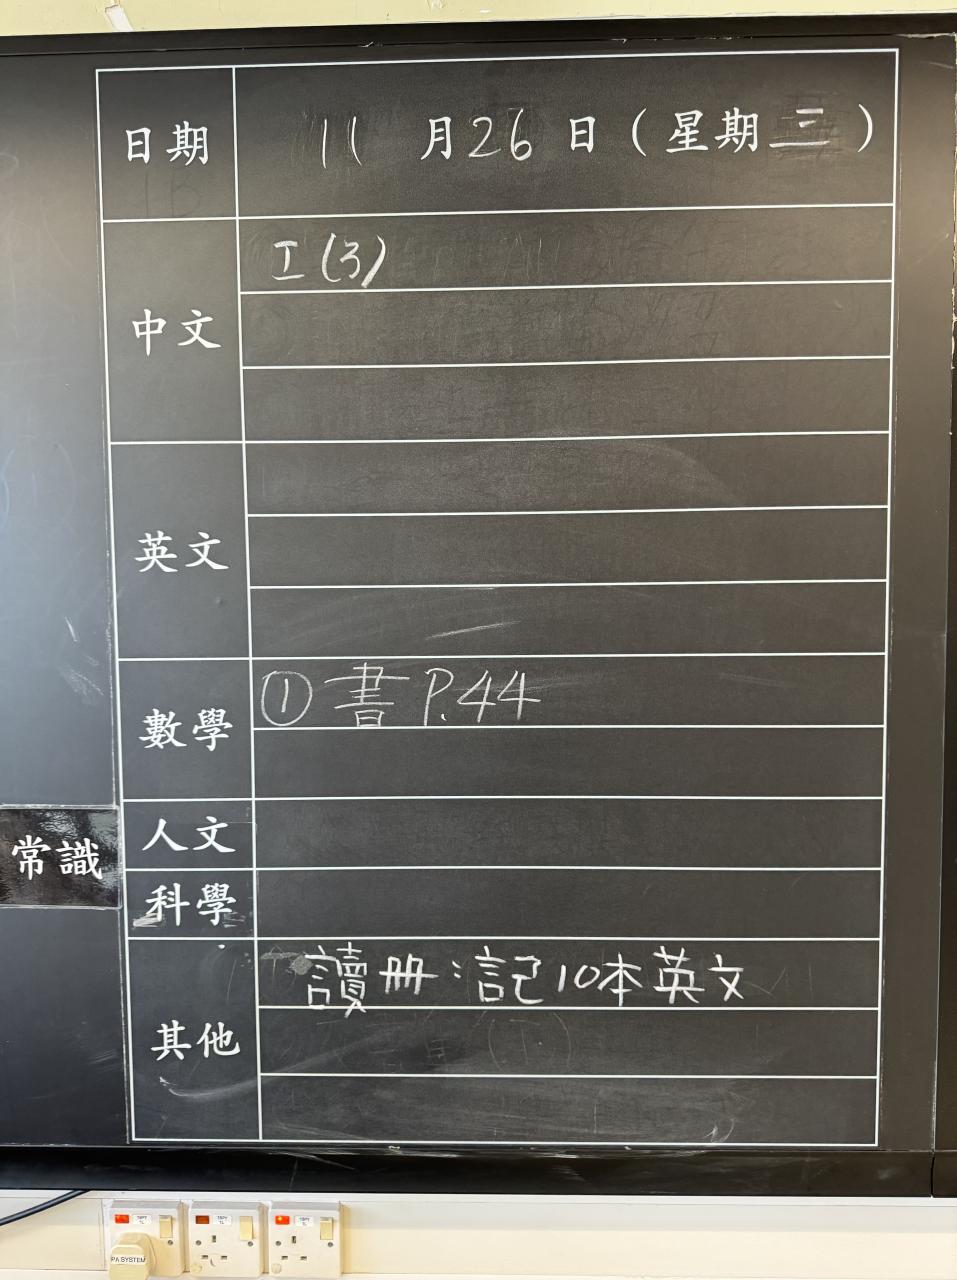 日期 11月26日（星期三）
中文 工(3)
英文
數學 ① 書 P.44
人文
常識
科學
其他 讀冊：記10本英文
PA SYSTEM